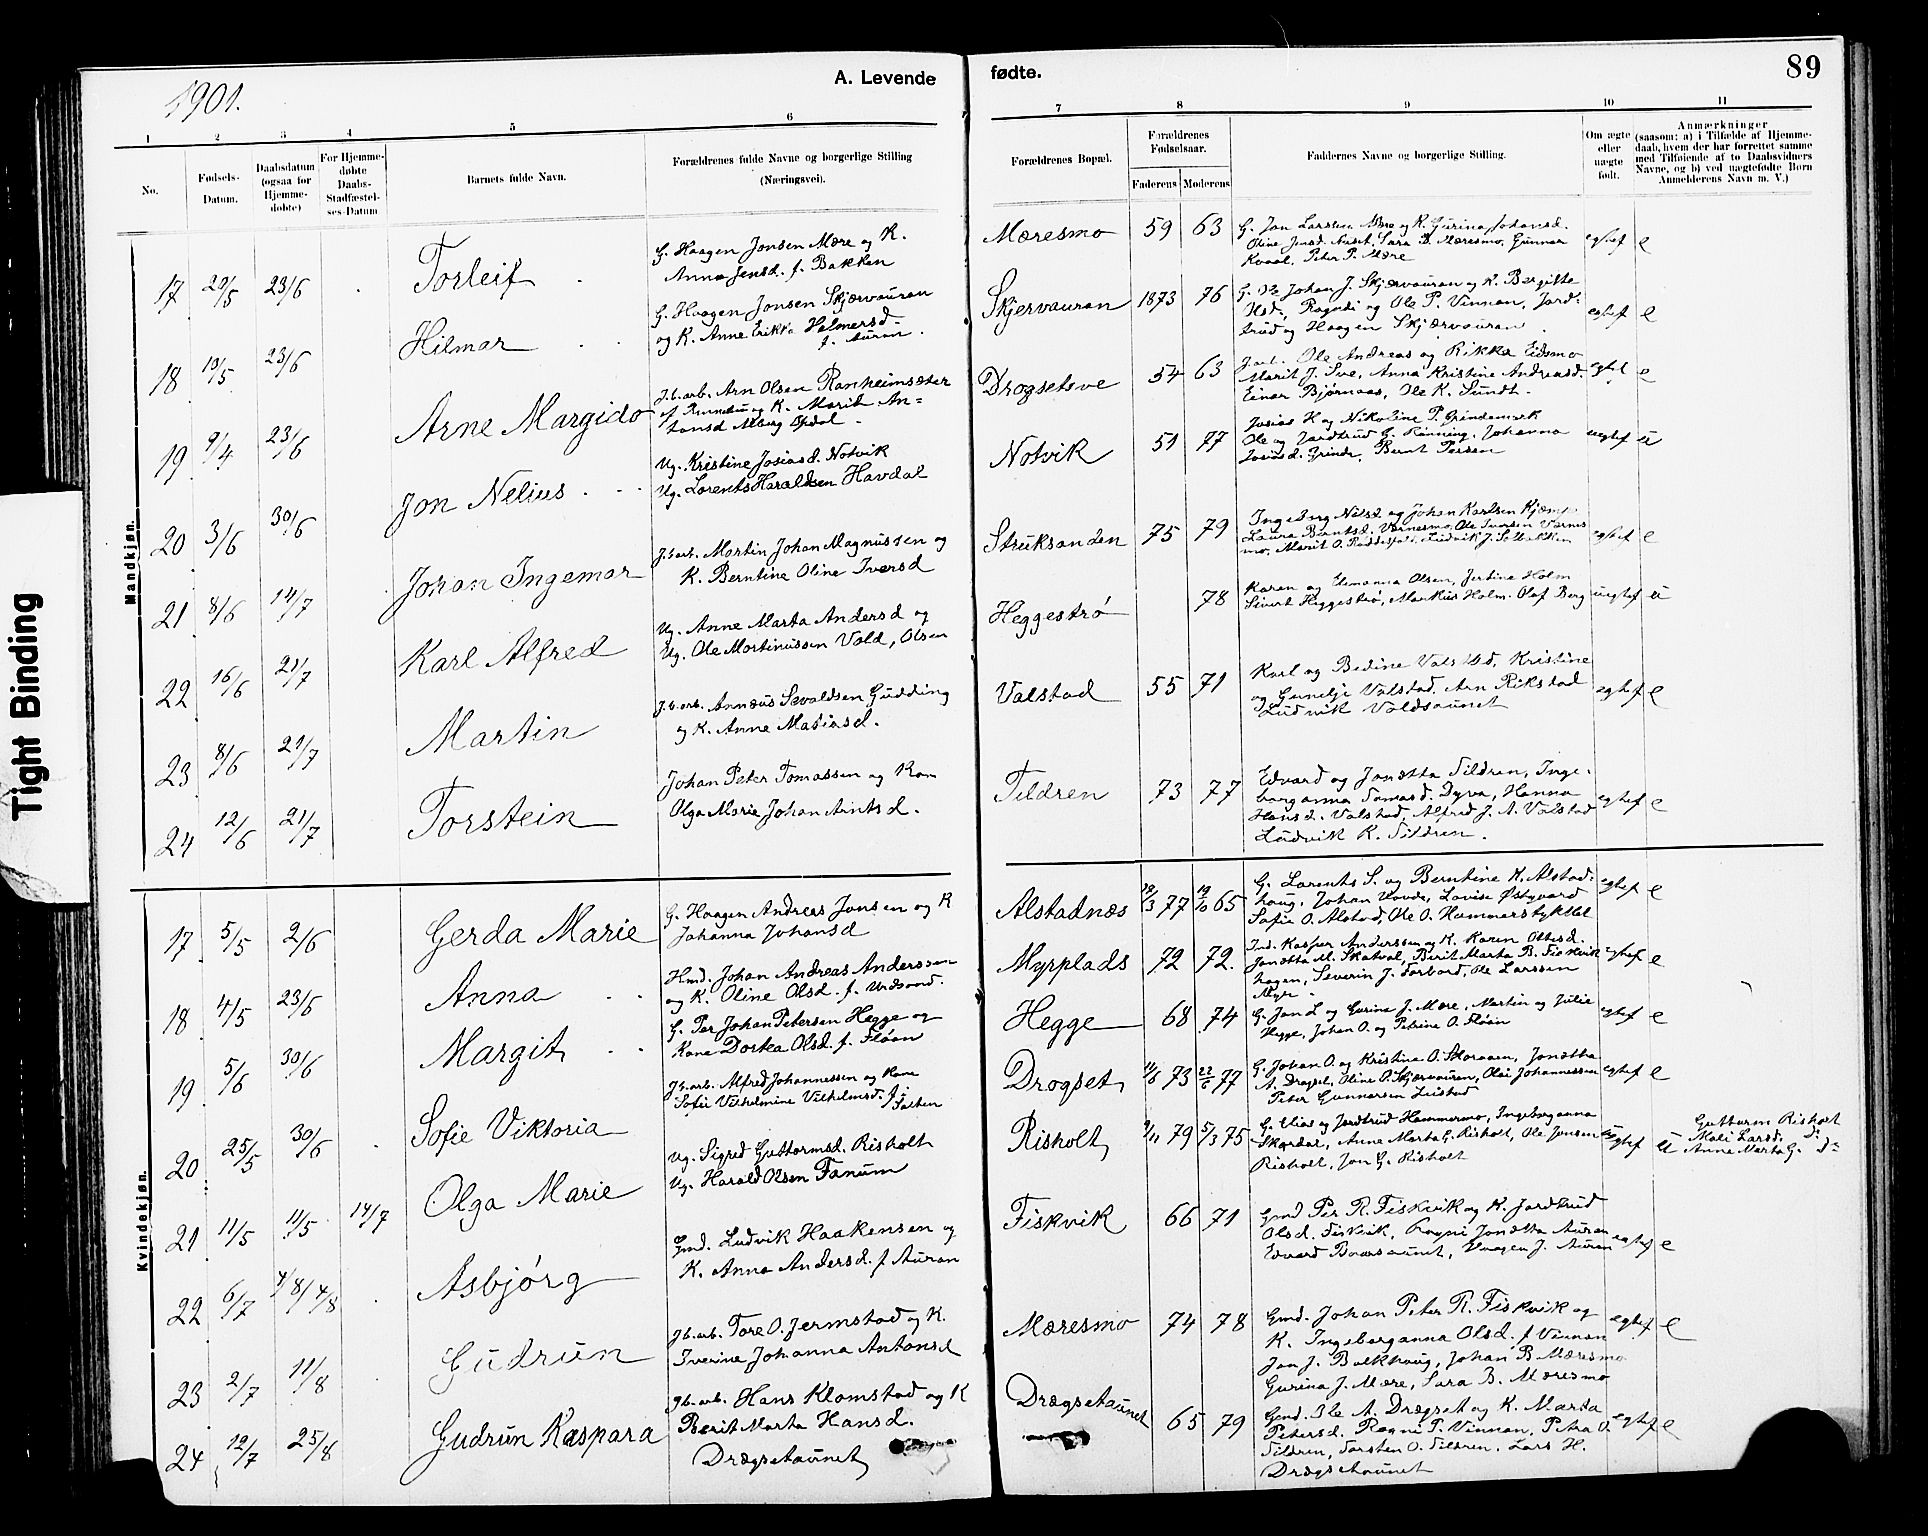 Tight Binding
1901.
A. Levende
fødte.
89
1 2 3 4 5 6 7 8 9 10 11
No.
Fødsels-Datum.
Daabsdatum (ogsaa for Hjemme-døbte)
For Hjemme-døbte Daabs-Stadfæstel-ses-Datum
Barnets fulde Navn.
Forældrenes fulde Navne og borgerlige Stilling
(Næringsvei).
Forældrenes Bopæl.
Forældrenes Fødselsaar.
Faderens Moderens
Faddernes Navne og borgerlige Stilling.
Om ægte eller uægte født.
Anmærkninger
(saasom: a) i Tilfælde af Hjemme-
daab, hvem der har forrettet samme
med Tilføiende af to Daabsvidners
Navne, og b) ved uægtefødte Børn
Anmelderens Navn m. V.)
Mandkjøn.
17 20/5 23/6 Torleif
G. Haagen Jonsen Mære og K.
Anna Jensd. f. Bakken
Mæresmo 59 63
G. Jon Larssen Mære og K. Gurina Johansd.
Sara B. Mæresmo, Gunnar
Kvaal, Peter P. Mære
egtef e
18 10/5 23/6 Hilmar
G. Haagen Jonsen Skjærvauran
og K. Anne Erikka Halmersd.
f. Auran.
Skjervauran 1873 76
G. Ole Johan J. Skjærvauran og K. Bergitte
Ragndi og Ole P. Vinnan, Jard-
trud og Haagen Skjærvauran
egtef e
19 9/4 23/6 Arne Margido
Jb.arb. Arn Olsen Ranheimsæter
af Rennebu og K. Marit An-
tonsd Aalberg Opdal.
Drogsetsve 54 63
J.arb. Ole Andreas og Rikka Eidsmo
Marit J. Sve, Anna Kristine Andreasd.
Einar Bjørnaas, Ole K. Sundt.
egtef e
20 3/6 30/6 Jon Nelius
Ug. Kristine Josiasd. Notvik
Ug. Lorents Haraldsen Havdal
Notvik 51 77
Josias K og Nikoline P. Grindemark
Ole og Jardtrud G. Rønning, Johanna
Josiasd. Grinde, Bernt Perssen
uegtef u
21 8/6 14/7 Johan Ingemar
Jb.arb. Martin Johan Magnussen og
K. Berntine Oline Iversd
Struksanden 75 79
Ingeborg Nilsd. og Johan Karlsen Kjæmp
Laura Berntsd. Værnesmo, Ole Iversen Værnes
mo, Marit O. Ludvik J. Solbakken
egtef e
22 16/6 21/7 Karl Alfred
Ug. Anne Marta Andersd og
Ug. Ole Martinussen Vold, Olsen
Heggestrø 78
Karen og Elenanna Olsen, Jertine Holm
Sivert Heggestrø, Markus Holm. Olaf Berg
uegtef u
23 8/6 21/7 Martin
Jb.arb. Annæus Sevaldsen Gudding
og K. Anne Masiasd.
Valstad 55 71
Karl og Bedine Valstad, Kristine
og Gunelje Valstad. Arn Rikstad
Ludvik Valdsaunet
egtef e
24 12/6 21/7 Torstein
Johan Peter Tomassen og Kone
Olga Marie Johan Arntsd.
Tildren 73 77
Edvard og Jonetta Tildren, Inge-
borganna Tomasd. Dyva, Hanna
Hansd. Valstad, Alfred J. A. Valstad
Ludvik K. Tildren.
egtef e
Kvindekjøn.
17 5/5 2/6 Gerda Marie
G. Haagen Andreas Jonsen og K
Johanna Johansd
Alstadnæs 12/3 77 19/10 65
G. Lorents S. og Berntine K. Alstad-
haug, Johan Vovde, Lovise Østgaard
Sofie O. Alstad, Ole O. Hammerstykket
egtef e
18 4/5 23/6 Anna
Hmd. Johan Andreas Anderssen
og K. Oline Olsd. f. Undsaard.
Myrplads 72 72.
Ind. Kasper Anderssen og K. Karen Olsd.
Jonetta M. Skatval, Berit Marta B. Fiskvik
hagen, Severin J. Forbord, Ole Larssen
Myr
egtef e
19 5/6 30/6 Margit
G. Per Johan Petersen Hegge og
Kone Dortea Olsd. f. Fløan
Hegge 68 74
G. Jon L og Gurine J. Mære, Martin og Julie
Hegge, Johan O. og Petrine O. Fløan
egtef e
20 25/5 30/6 Sofie Viktoria
Jb.arb. Alfred Johannessen og Kone
Sofie Vilhelmine Vilhelmsd. f. i
Salten
Drogset 11/6 73 22/6 77
G. Johan O. og Kristine O. Storaaen, Jonetta
A. Drogset, Oline O. Skjærvauren, Olai Johannessen
Peter Gunnarsen Leistad
egtef e
21 11/5 11/5 14/7 Olga Marie
Ug. Sigred Guttormsd. Risholt
Ug. Harald Olsen Fanum
Risholt 9/11 79 5/3 75
G. Elias og Jardtrud Hammermo, Ingeborganna
Skordal, Anne Marta G. Risholt, Ole Jonsen
Risholt, Jon G. Risholt
uegtef u
Guttorm Risholt
Mali Larsd. d:
Anne Marta G. d:
22 6/7 4/8 4/8 Asbjørg
Gmd. Ludvik Haakensen og
K. Anna Andersd. f Auran
Fiskvik 66 71
Gmd Per R. Fiskvik og K. Jardtrud
Olsd. Fiskvik, Ragni Jonetta Auran
Edvard Baarsaunet, Haagen J. Auran
egtef e
23 2/7 11/8 Gudrun
Jb.arb. Tore O. Jermstad og K.
Iverine Johanna Antonsd
Mæresmo 74 78
Gmd. Johan Peter R. Fiskvik og
K. Ingeborganna Olsd. f Vinnan
Jon J. Balkhaug, Johan B Mæresmo
Gurina J. Mære, Sara B. Mæresmo
egtef e
24 12/7 25/8 Gudrun Kaspara
Jb.arb. Hans Klomstad og K
Berit Marta Hansd.
Drægsetaunet
Drægsetaunet 65 79
Gmd. Ole A. Drægset og K. Marta
Petersd. Ragni P. Vinnan, Petra O.
Tildren, Torsten O. Tildren, Lars H.
Drægsetaunet
egtef e